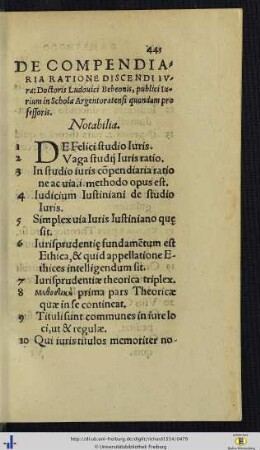 445
DE COMPENDIA-
RIA RATIONE DISCENDI IV-
ra: Doctoris Ludouici Beberonis, publici Iu-
rium in Schola Argentoratensi quondam pro
fessoris.
Notabilia.
1 DE Felici studio Iuris.
2 Vaga studij Iuris ratio.
3 In studio iuris cõpendiaria ratio
ne ac uia .i. methodo opus est.
4 Iudicium Iustiniani de studio
Iuris.
5 Simplex uia Iuris Iustiniano quę
sit.
6 Iurisprudentię fundamẽtum est
Ethica, & quid appellatione E-
thices intelligendum sit.
7 Iurisprudentiæ theorica triplex.
8 prima pars Theoricæ
quæ in se contineat.
9 Tituli sunt communes in iure lo
ci, ut & regulæ.
10 Qui iuris titulos memoriter no-
© Universitätsbibliothek Freiburg